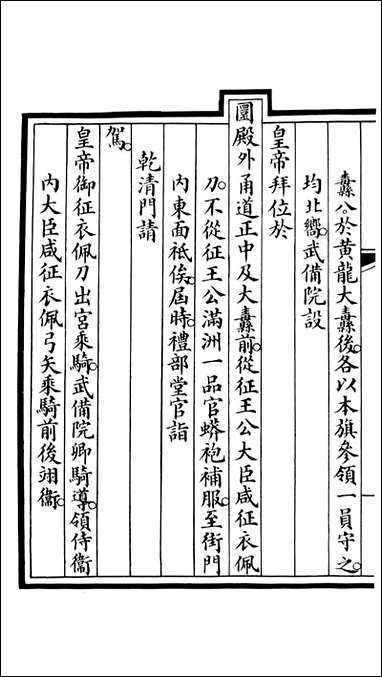 纛八於黄龍大纛後各以本旗參領一員守之
均北嚮武備院設
皇帝拜位於
圜殿外甬道正中及大纛前從征王公大臣咸征衣佩
刀不從征王公滿洲一品官蟒袍補服至街門
内東面祗俟屆時禮部堂官詣
乾清門請
駕
皇帝御征衣佩刀出宮乘騎武備院卿騎導領侍衞
内大臣咸征衣佩弓矢乘騎前後翊衞